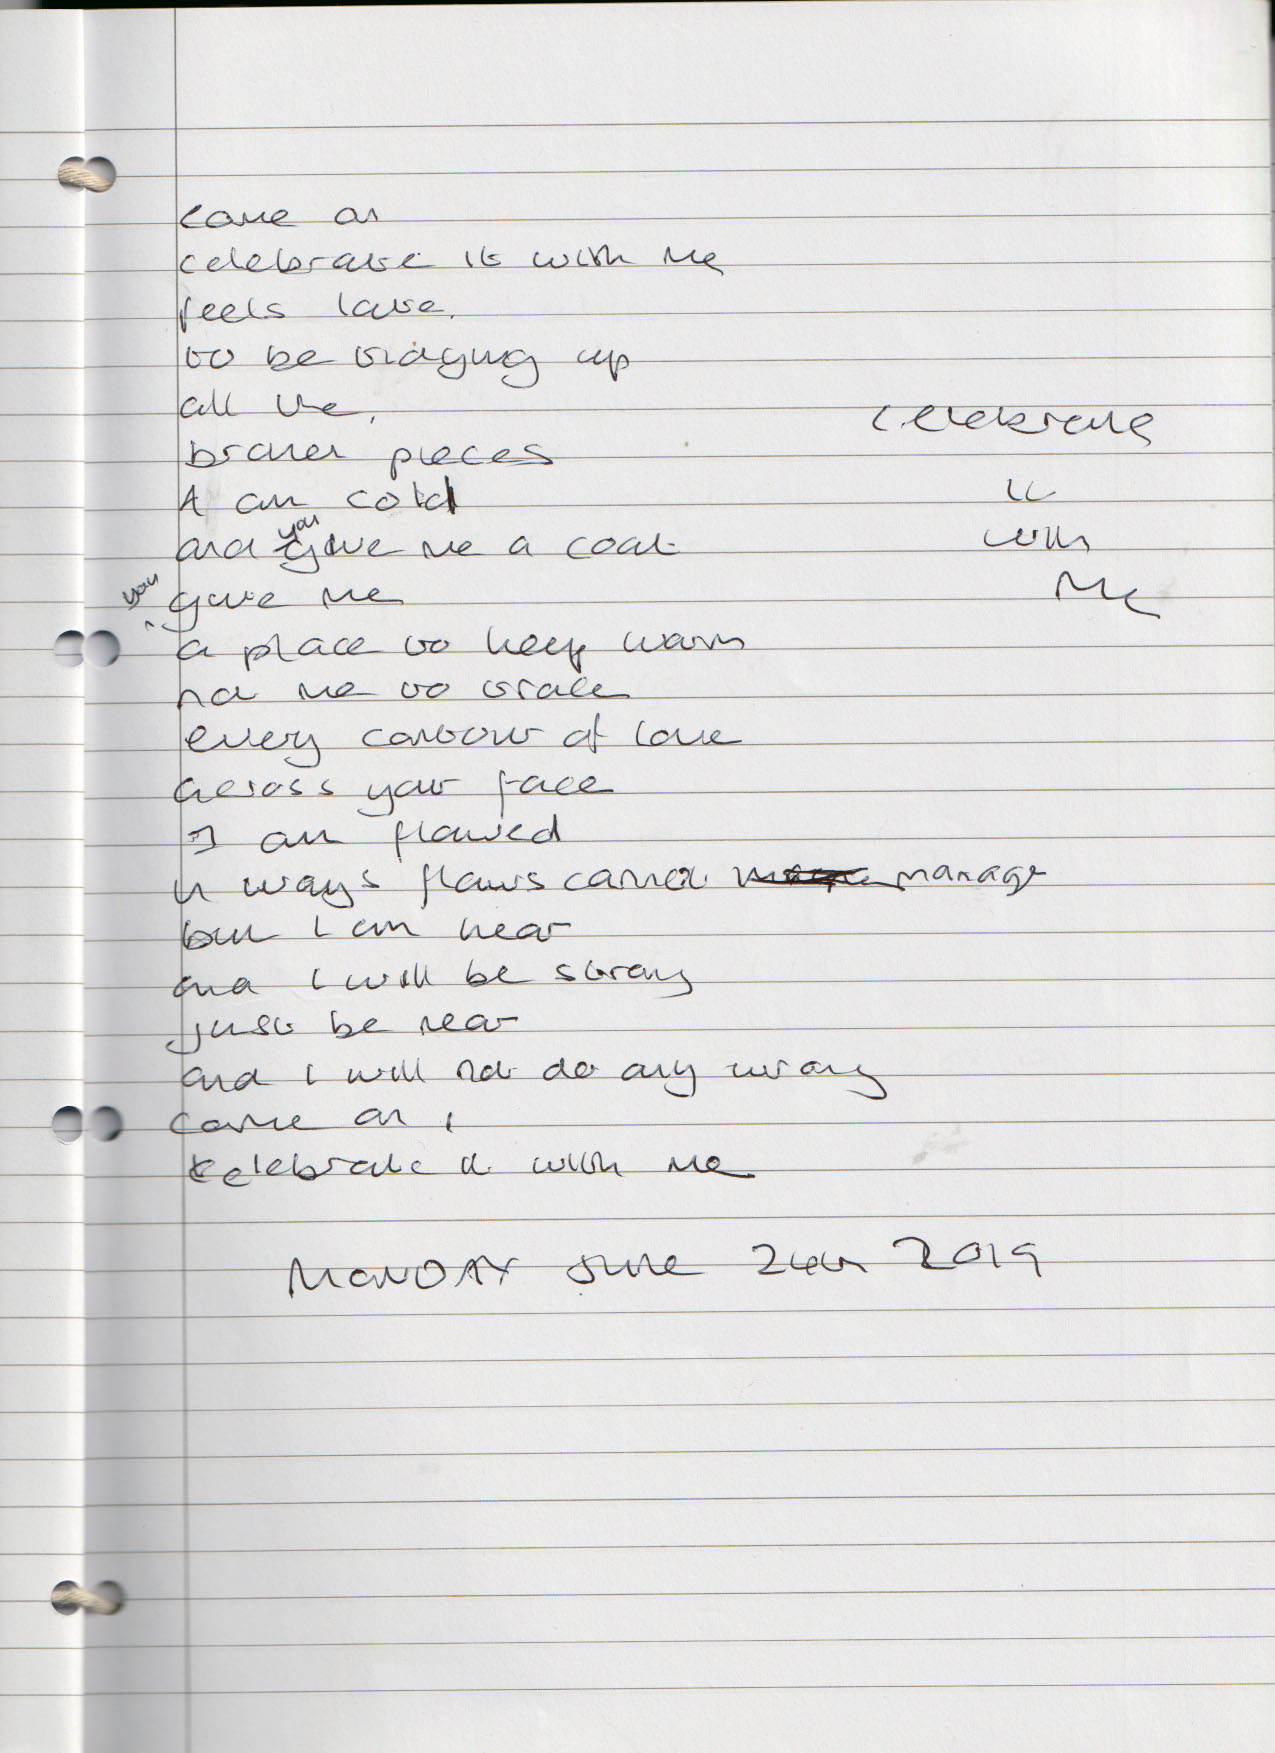 come on
celebrate it with me
feels love.
to be bringing up
all the,
broken pieces
I am cold
and you give me a coat
you gave me
a place to keep warm
not me to trace
every contour of love
across your face
I am flawed
in ways flaws cannot manage
but I am near
and I will be strong
just be near
and I will not do any wrong
come on,
celebrate it with me
celebrate
it
with
me
MONDAY June 24th 2019